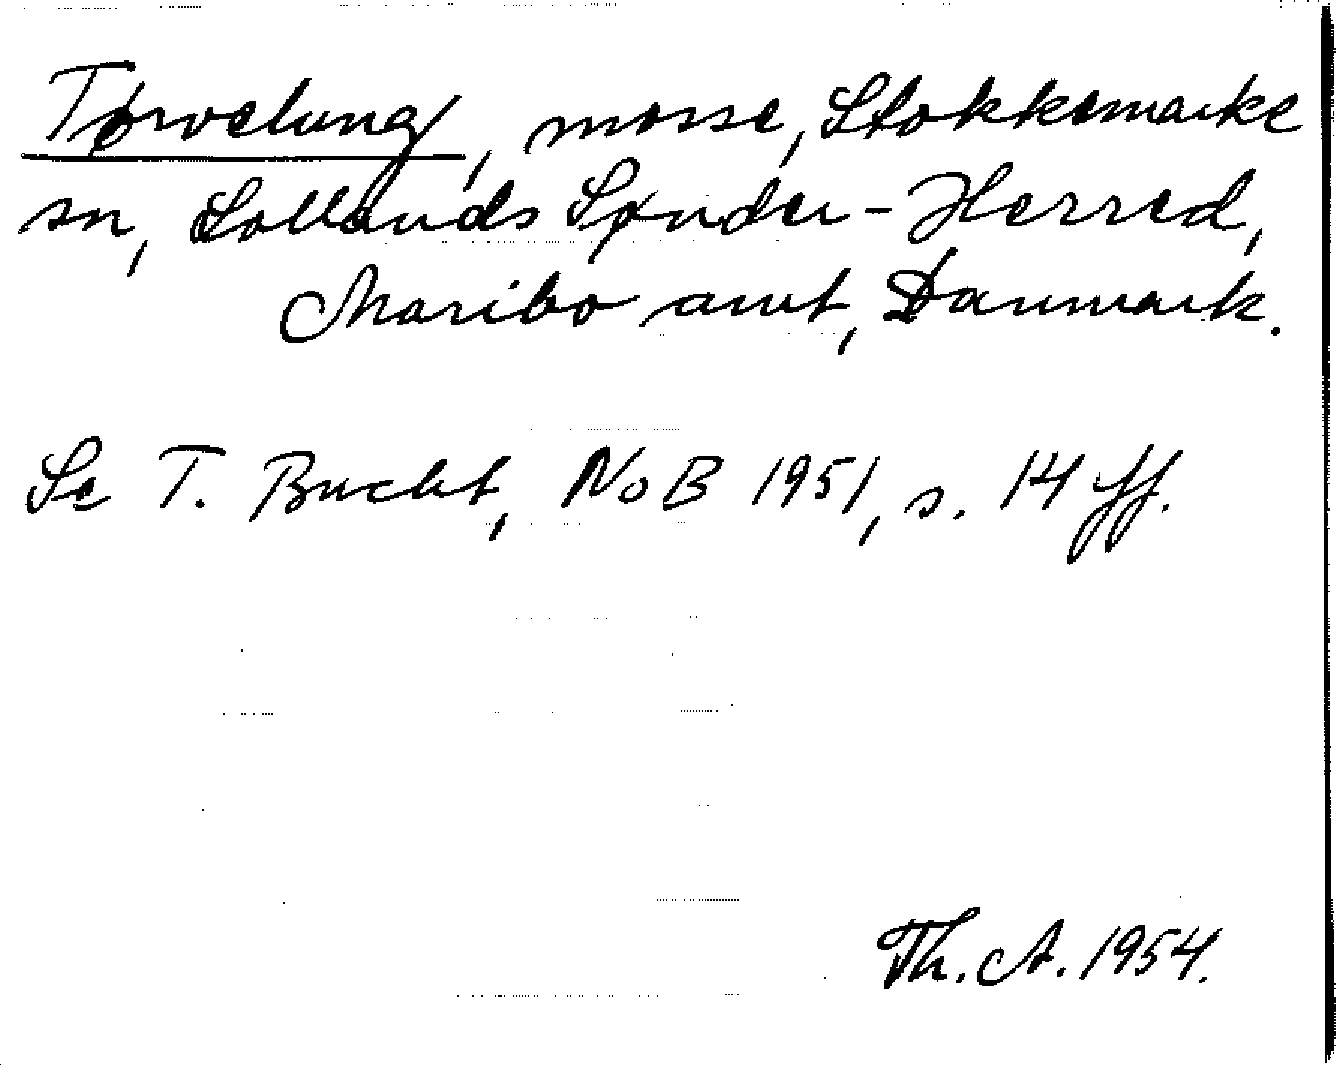 Tørvelung, mosse, Stokkemarke
sn, Lollands Sønder-Herred,
Maribo amt, Danmark.
Se T. Bucht, NoB 1951, s. 14 ff.
Th. A. 1954.